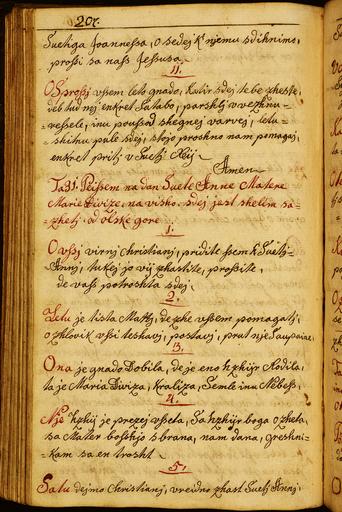 207.
Suetiga Joannessa, o sedej k' njemu sdihnimo,
prossi sa nass Jessusa.
11.
O S. prossj vssem leto gnado, Katir sdej tebe zheste,
deb tud nej enkret Satabo, parshlj vvezhnu=
vessele, inu pousod shegnej varvej, letu=
shitnu pule sdej, stojo proshno nam pomagaj,
enkret pritj v Suetj Raj.
Amen
Ta 31. Peissem na dan Suete Anne Matere
Marie Divize, na visko sdej jest shelem sa=
zhetj od Olske gore
1.
O vssj virnj Christianj, pridite ssem k Suetj=
Annj, tukej jo vij zhastite, prossite,
de vass potroshta sdej.
2.
Letu je tista Matj, de zhe vssem pomagatj,
o zhlovik vssi teshavj, postavj, prat nje
3.
Ona je gnado Dobila, de je eno hzhijr Rodila,
ta je Maria Diviza, Kraliza, Semle inu Nebess,
4.
Nje hzhij je prezej vsseta, Sa hzhijr boga ozheta,
sa Mater boshjo sbrana, nam dana, greshni=
=kam sa en trosht
5.
Satu dejmo Christianj, vreidno zhast Suetj Annj,